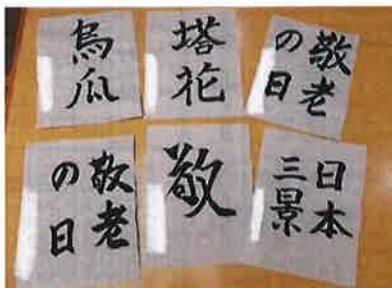 烏瓜
塔花
敬老
の日
敬老
の日
敬
日本
三景